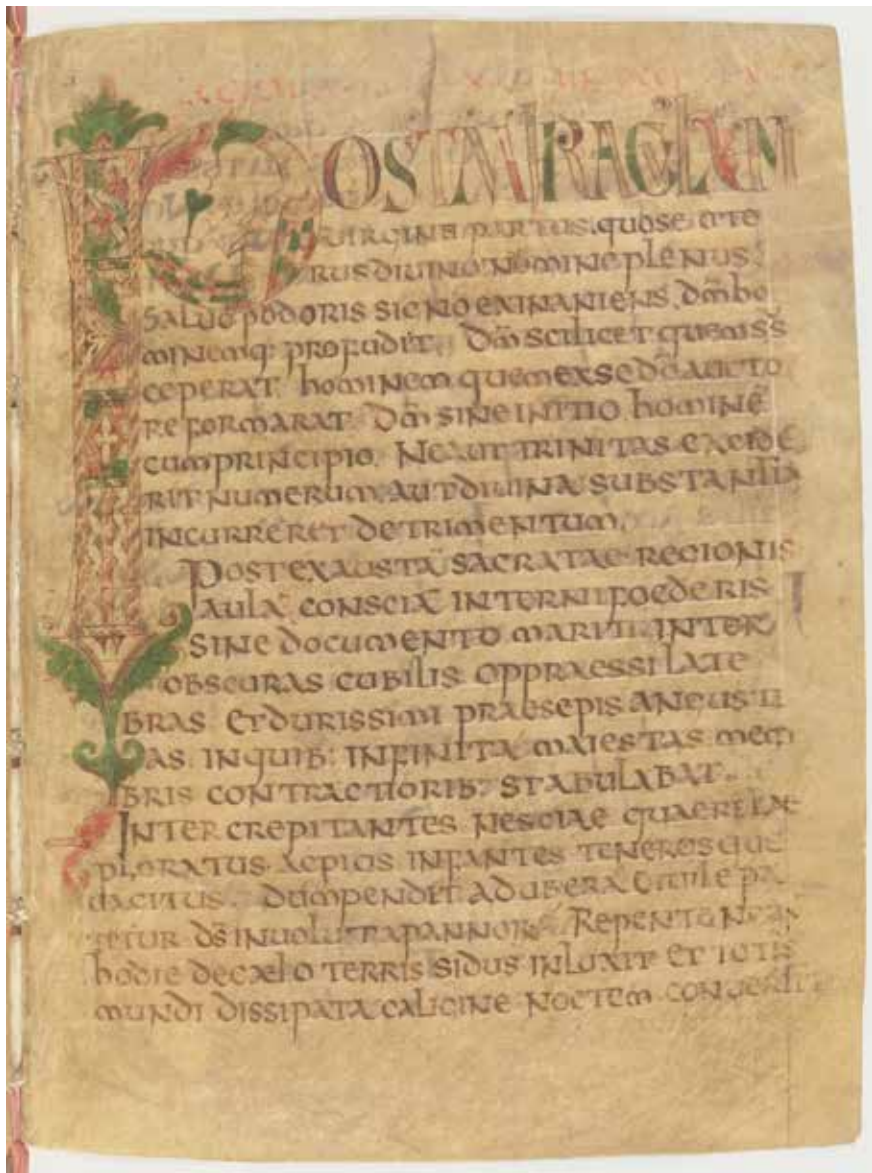 POST MIRACULUM
VIRGINEI PARTUS. quo se aete
RUS DIVINO NOMINE plenius
SALVO pudoris SIGNO EXINANIENS. dm ho
minemq: profudit. Dm scilicet quem
ceperat. hominem quem ex se
REFORMARAT. Dm SINE INITIO. homine
cum principio. Ne aut TRINITAS excide
RIT NUMERUM, AUT DIVINA SUBSTANTIA
INCURRERET DETRIMENTUM.
Post exausta sacratae regionis
aula. conscia interni foederis
SINE documento mariti. INTER
obscuras cubilis oppraessi late
bras et durissimi praesepis angusti
as. in quib: infinita maiestas mem
bris contractiorib: stabulabat.
Inter crepitantes nesciae quaerellae
ploratus. ac pius infantes teneros que
vagitus. dum pendet ad ubera
tetur ds involutra pannor Repente
hodie de caelo terris sidus inluxit et totis
mundi dissipata caligine noctem